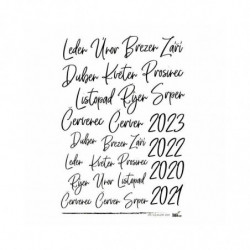 Leden Únor Březen Září
Duben Květen Prosinec
Listopad Říjen Srpen
Červenec Červen 2023
Duben Březen Září 2022
Leden Květen Prosinec 2020
Říjen Únor Listopad
Červenec Červen Srpen 2021